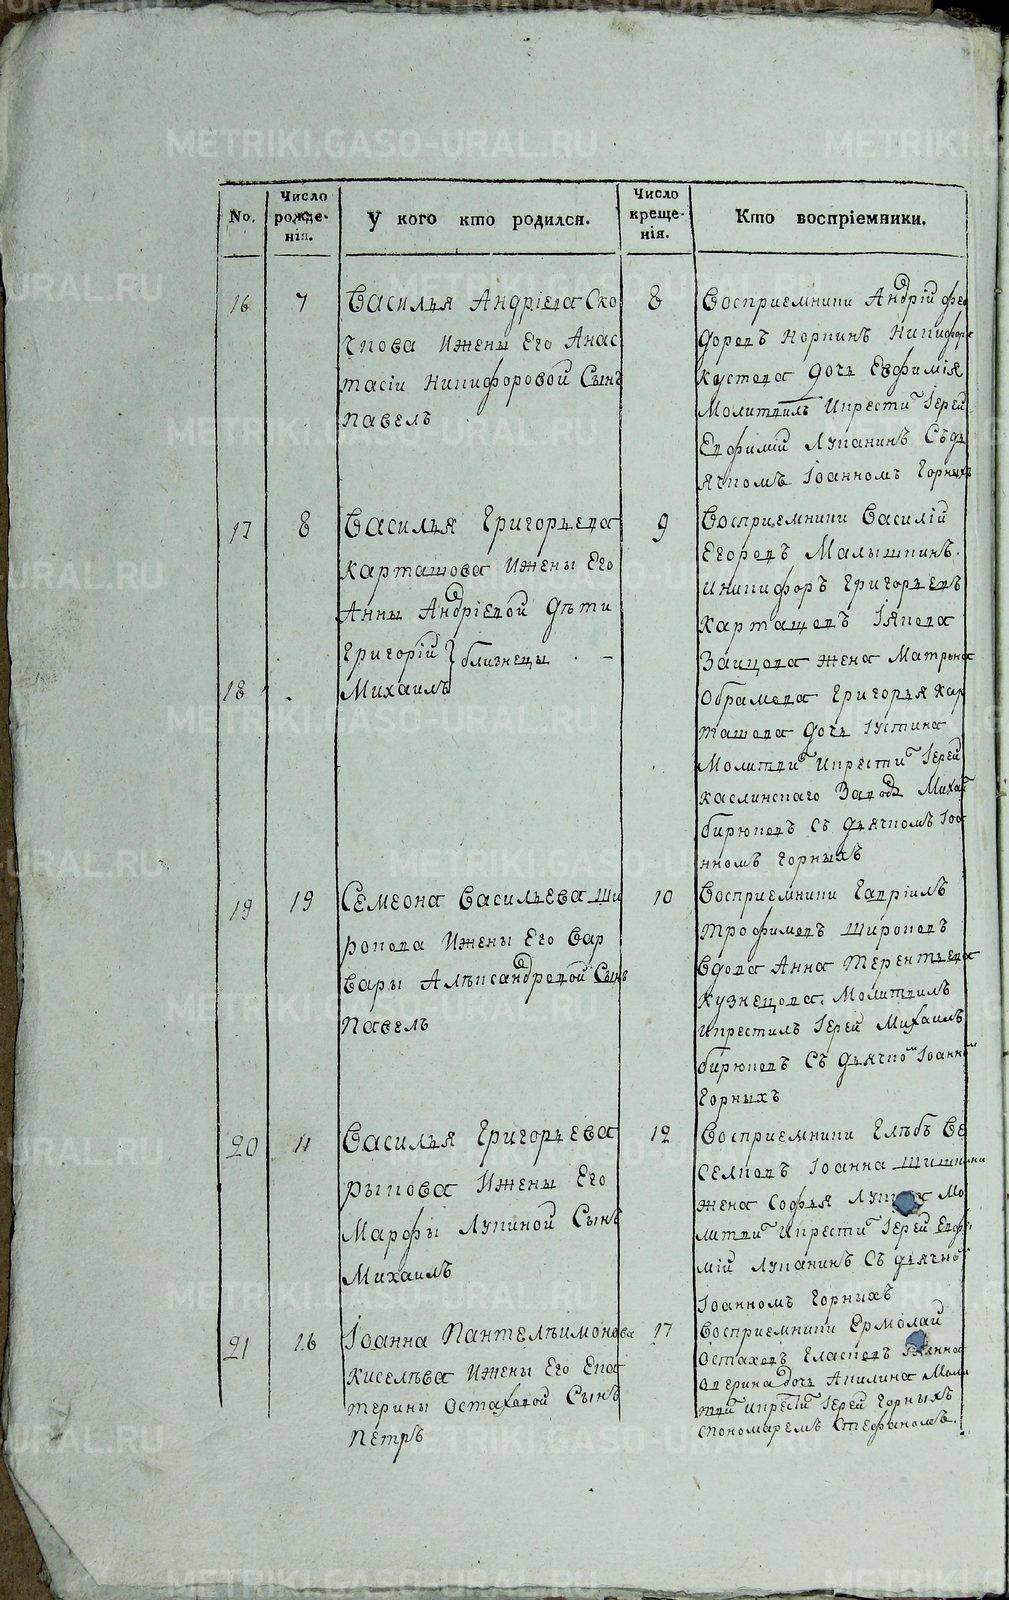 No.
Число рожде-нія.
У кого кто родился.
Число креще-нія.
Кто воспріемники.
16
7
Василья Андріева Ско
чкова Ижены Его Анас
тасіи Никифоровой Сынъ
Павелъ
8
Восприемники Андрій Фео
доровъ Норкинъ Никифора
Кустова дочь Евфимія
Молитвилъ Икрести Іерей
Евфимій Лупанинъ Съдь
ячкомъ Іоанномъ Горныхъ
17
8
Василья Григорьева
Карташова Ижены Его
Анны Андріевой Дѣти
Григорій
близнецы
18
Михаилъ
9
Восприемники Василій
Егоровъ Малышкинъ.
Иникифоръ Григорьевъ
Карташовъ Іякова
Заицова жена Матрона
Обрамова Григорья Кар
ташова дочь Іустина
Молитви Икрести Іерей
Каслинскаго Завода Михаи
Бирюковъ Съ дьячкомъ Іоа
нномъ Горныхъ
19
19
Семеона Васильева Ши
рокова Ижены Его Вар
вары Алѣксандровой Сынъ
Павелъ
10
Восприемники Гавріилъ
Трофимовъ Широковъ
Вдова Анна Терентьева
Кузнецова. Молитвилъ
Икрестилъ Іерей Михаилъ
Бирюковъ Съ дьячко Іоанно
Горныхъ
20
11
Василья Григорьева
Рыкова Ижены Его
Марфы Лукиной Сынъ
Михаилъ
12
Восприемники Глѣбъ Ве
селковъ Іоанна Шишкина
жена Софья Мо
литви Икрести Іерей Евфи
мій Лупанинъ Съ дьячко
Іоанномъ Горныхъ
21
16
Іоанна Пантелѣимонова
Киселѣва Ижены Его Ека
терины Остаховой Сынъ
Пѣтръ
17
Восприемники Ермолай
Остаховъ Гласковъ
Оверина дочь Акилина Моли
тви Икрести Іерей Горныхъ
Спономаремъ Стефаномъ.
METRIKI.GASO-URAL.RU